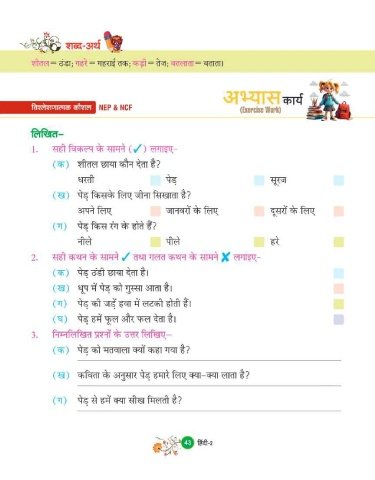 शब्द-अर्थ
शीतल = ठंडा; गहरे = गहराई तक; कड़ी = तेज; बतलाता = बताता।
अभ्यास कार्य
(Exercise Work)
विश्लेषणात्मक कौशल NEP & NCF
लिखित–
1. सही विकल्प के सामने (✓) लगाइए–
(क) शीतल छाया कौन देता है?
धरती पेड़ सूरज
(ख) पेड़ किसके लिए जीना सिखाता है?
अपने लिए जानवरों के लिए दूसरों के लिए
(ग) पेड़ किस रंग के होते हैं?
नीले पीले हरे
2. सही कथन के सामने ✓ तथा गलत कथन के सामने ✗ लगाइए–
(क) पेड़ ठंडी छाया देता है।
(ख) धूप में पेड़ को गुस्सा आता है।
(ग) पेड़ की जड़ें हवा में लटकी होती हैं।
(घ) पेड़ हमें फूल और फल देता है।
3. निम्नलिखित प्रश्नों के उत्तर लिखिए–
(क) पेड़ को मतवाला क्यों कहा गया है?
(ख) कविता के अनुसार पेड़ हमारे लिए क्या-क्या लाता है?
(ग) पेड़ से हमें क्या सीख मिलती है?
43 हिंदी-2